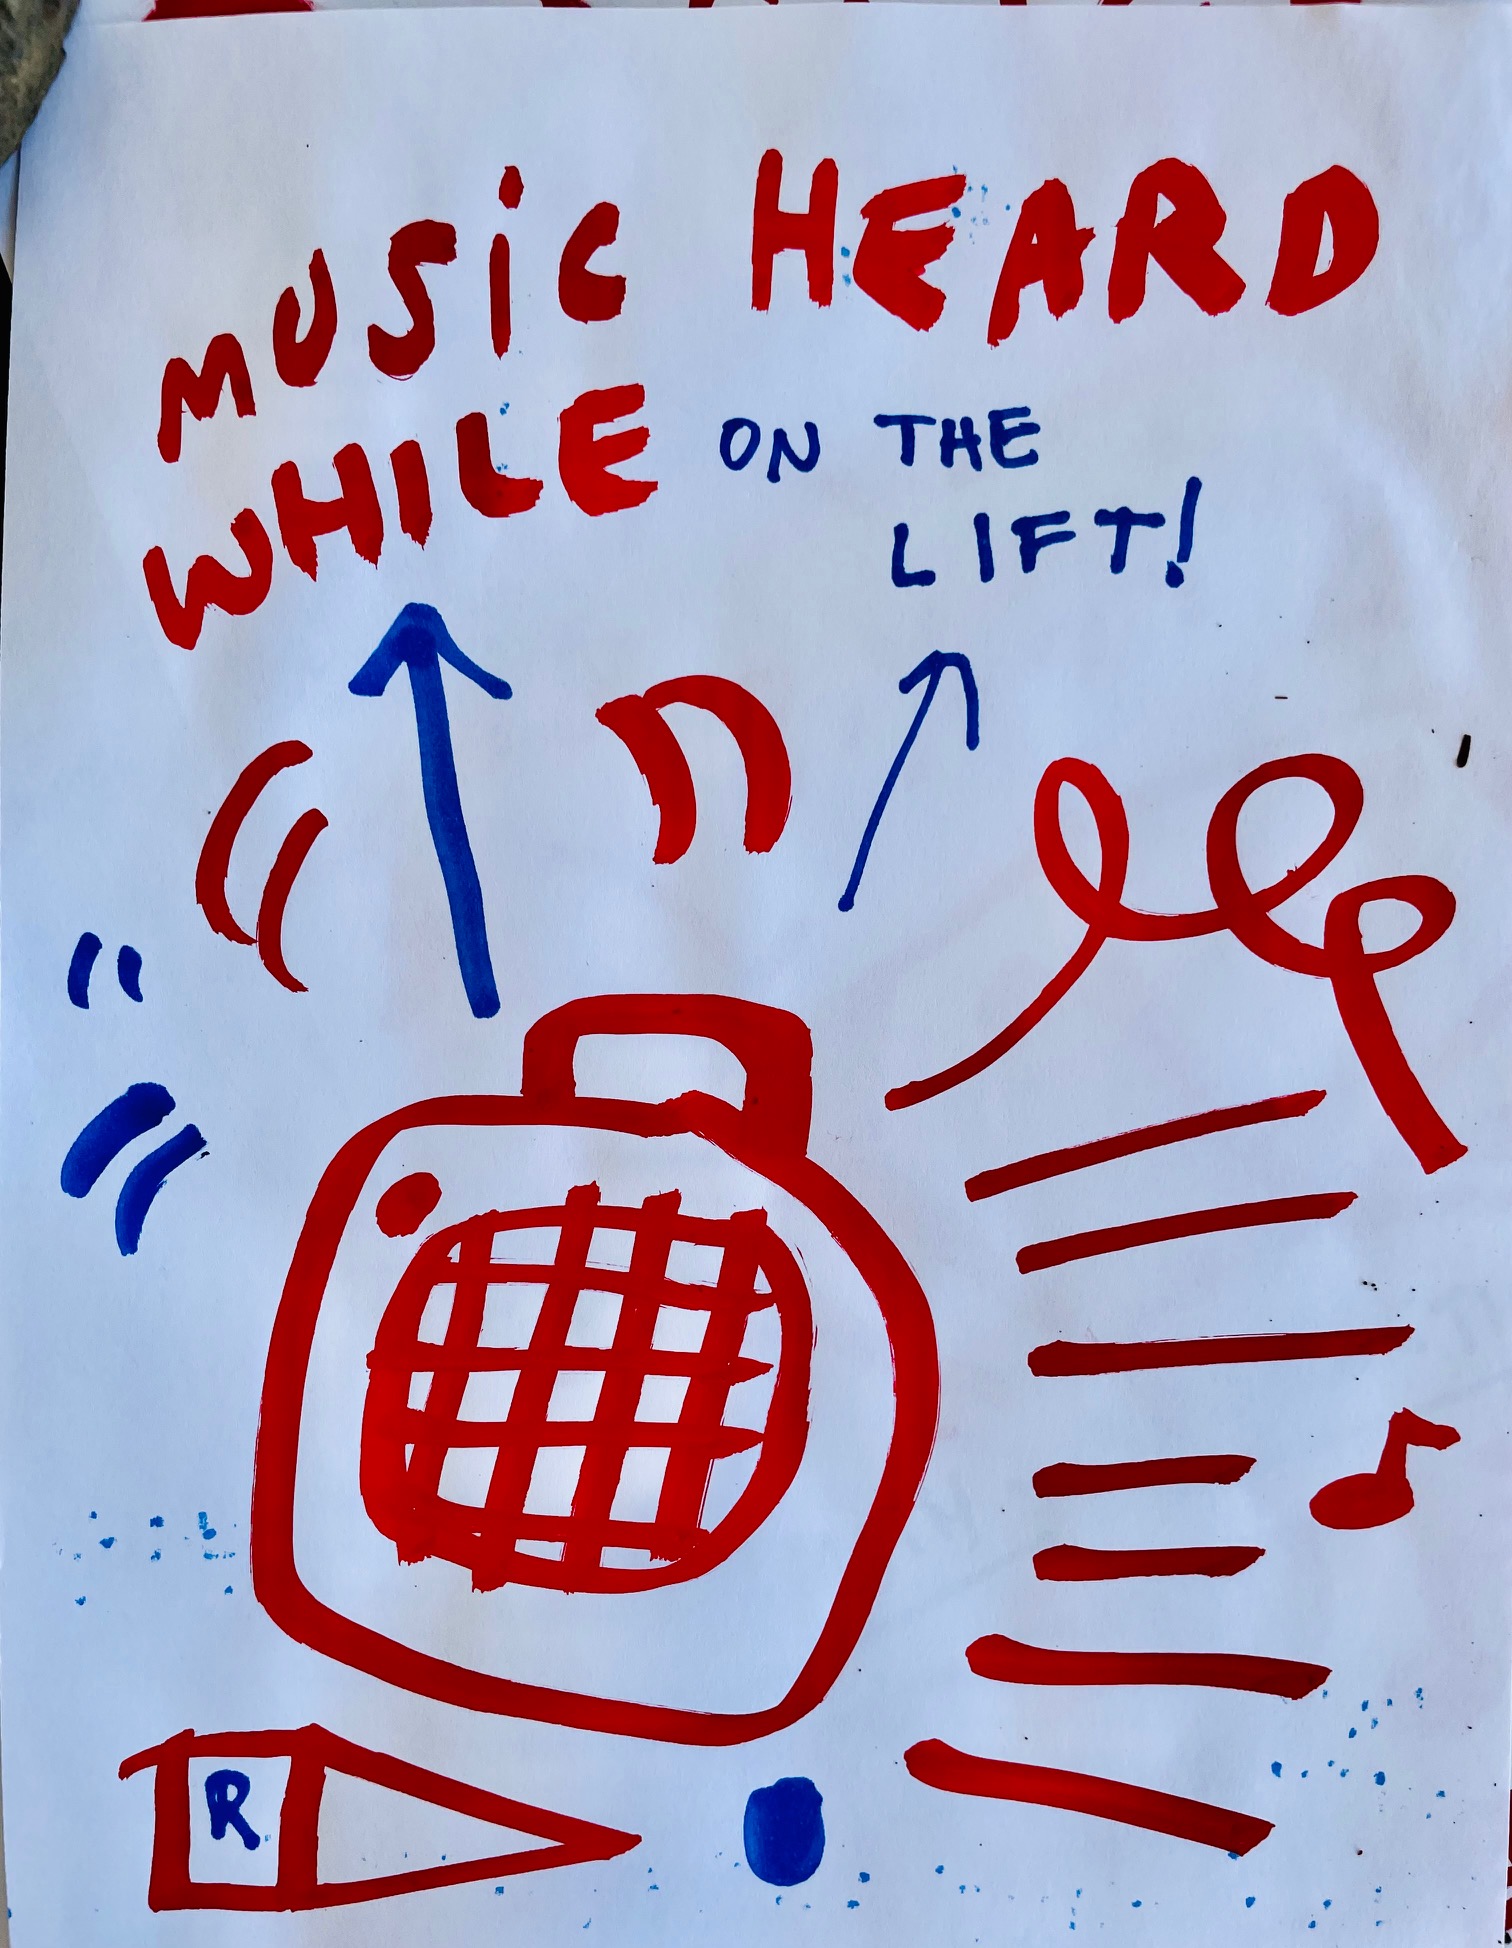 MUSiC HEARD
WHILE ON THE
LIFT!
R